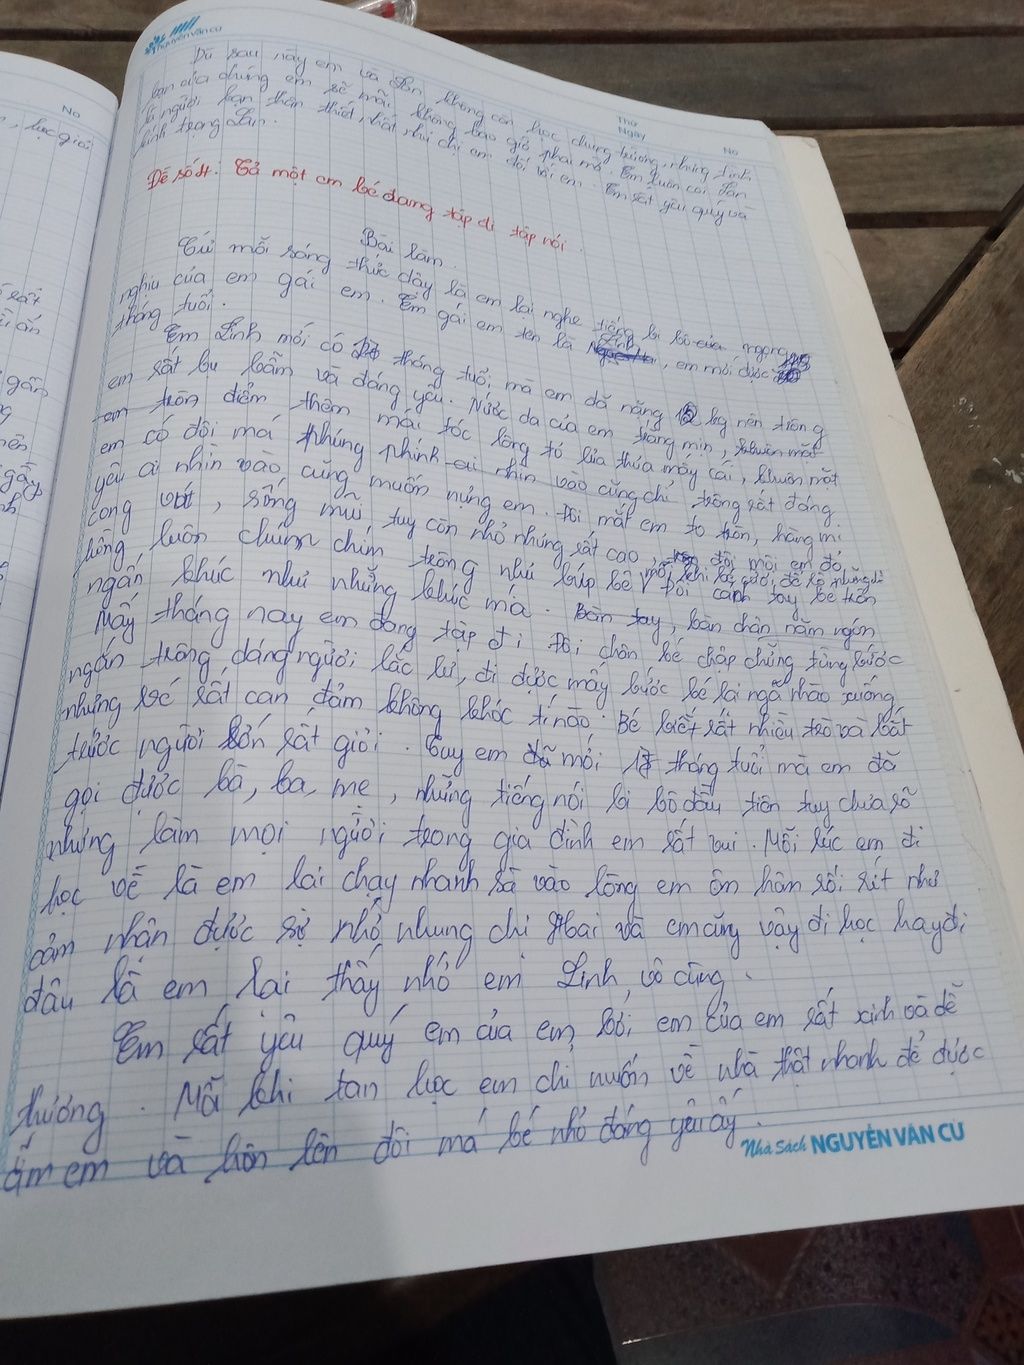 nguyenvancu
Thứ
Ngày
No
No
Dù sau này em và Lan không còn học chung trường, nhưng tình
bạn của chúng em sẽ mãi không bao giờ phai mờ. Em luôn coi Lan
là người bạn thân thiết, như chị em đối với em. Em rất yêu quý và
Lan.
Đề số 4: Tả một em bé đang tập đi tập nói.
Bài làm.
Cứ mỗi sáng thức dậy là em lại nghe tiếng bi bô của
nghịu của em gái em. Em gái em tên là Linh, em mới được
tháng tuổi.
Em Linh mới có tháng tuổi, mà em đã nặng kg nên trông
em rất bụ bẫm và đáng yêu. Nước da của em trắng mịn, khuôn mặt
em tròn điểm thêm mái tóc lông tơ lưa thưa mấy cái, khuôn mặt
em có đôi má phúng phính ai nhìn vào cũng chỉ trông rất đáng
yêu ai nhìn vào cũng muốn nựng em. Đôi mắt em to tròn, hàng mi
cong vút, sống mũi tuy còn nhỏ nhưng rất cao, đôi môi em đỏ
hồng, luôn chúm chím trông như búp bê, mỗi khi bé cười để lộ những
ngấn khúc như những khúc mía. Bàn tay, bàn chân năm ngón
đôi cánh tay bé tròn
Mấy tháng nay em đang tập đi. Đôi chân bé chập chững từng bước
ngắn trông dáng người lắc lư, đi được mấy bước bé lại ngã nhào xuống
nhưng bé rất can đảm không khóc tí nào. Bé biết rất nhiều trò và bắt
trước người lớn rất giỏi. Tuy em mới tháng tuổi mà em đã
gọi được bà, ba, mẹ, những tiếng nói bi bô đầu tiên tuy chưa rõ
nhưng làm mọi người trong gia đình em rất vui. Mỗi lúc em đi
học về là em lại chạy nhanh sà vào lòng em ôm hôn rối rít như
cảm nhận được sự nhớ nhung chị Hai và em cũng vậy đi học hay đi
đâu là em lại thấy nhớ em Linh vô cùng.
Em rất yêu quý em của em, bởi em của em rất xinh và dễ
thương. Mỗi khi tan học em chỉ muốn về nhà thật nhanh để được
ẵm em và hôn lên đôi má bé nhỏ đáng yêu ấy.
Nhà Sách NGUYỄN VĂN CỪ